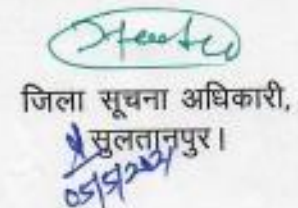 जिला सूचना अधिकारी,
सुलतानपुर।
05/5/2021